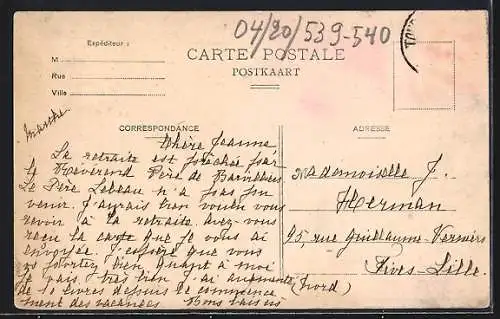 04/20/539-540
Expéditeur :
M
Rue
Ville
CARTE POSTALE
POSTKAART
CORRESPONDANCE
ADRESSE
Chère Jeanne
La retraite est prêchée par
le Révérend Père de
Le Père Lebeau n'a pas pu
venir. J'aurais bien voulu vous
revoir à la retraite. avez-vous
reçu la carte que je vous ai
envoyée. J'espère que vous
vs portez bien quant à moi
je vais très bien. J'ai augmenté
de 10 livres depuis le commence
ment des vacances. Nous
Mademoiselle J.
Herman
95, rue Guillaume Verniers
Fives-Lille
(Nord)